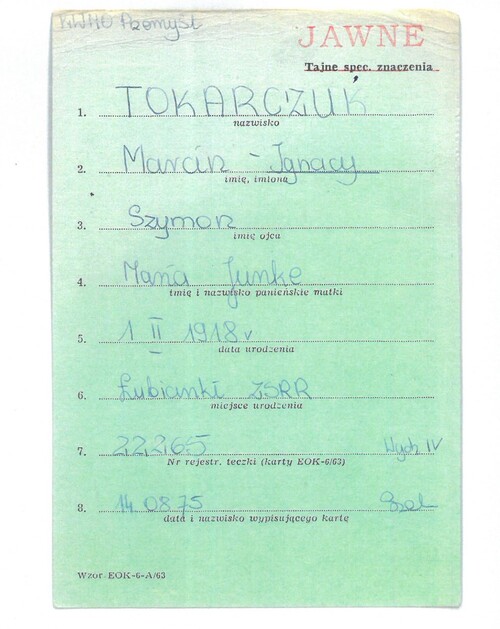 KWMO Przemyśl
JAWNE
Tajne spec. znaczenia
1. TOKARCZUK
nazwisko
2. Marcin - Ignacy
imię, imiona
3. Szymon
imię ojca
4. Maria Junke
imię i nazwisko panieńskie matki
5. 1 II 1918
data urodzenia
6. Łubianki ZSRR
miejsce urodzenia
7. 22265 Wydz IV
Nr rejestr. teczki (karty EOK-6/63)
8. 14 08 75
data i nazwisko wypisującego kartę
Wzór EOK-6-A/63